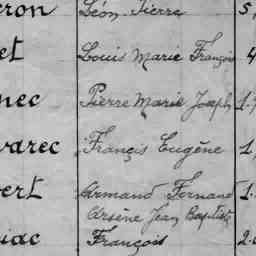 eron Léon Pierre 5
et Louis Marie François 4
nec Pierre Marie Joseph 1.
varec Francis Eugène 1,
vert Armand Fernand 1.
Arsène Jean Baptiste
iac François 2.